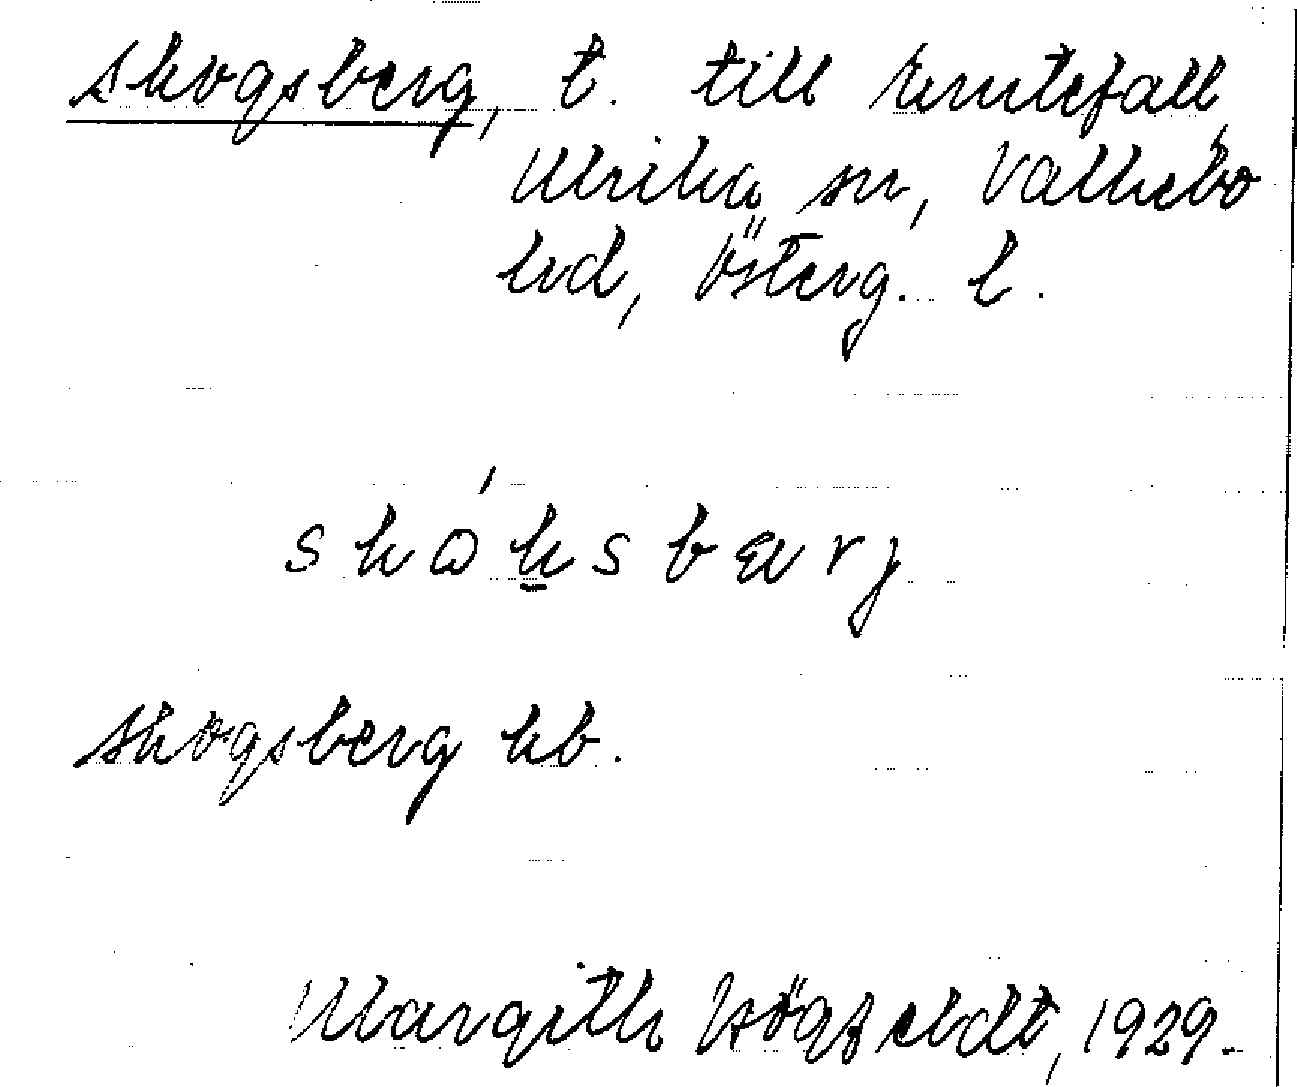 Skogsberg, t. till Knutefall,
Ulrika sn, Valkebo
hd, Österg. l.
skώk̠sbærj
Skogsberg kb.
Margith Högfeldt, 1929.